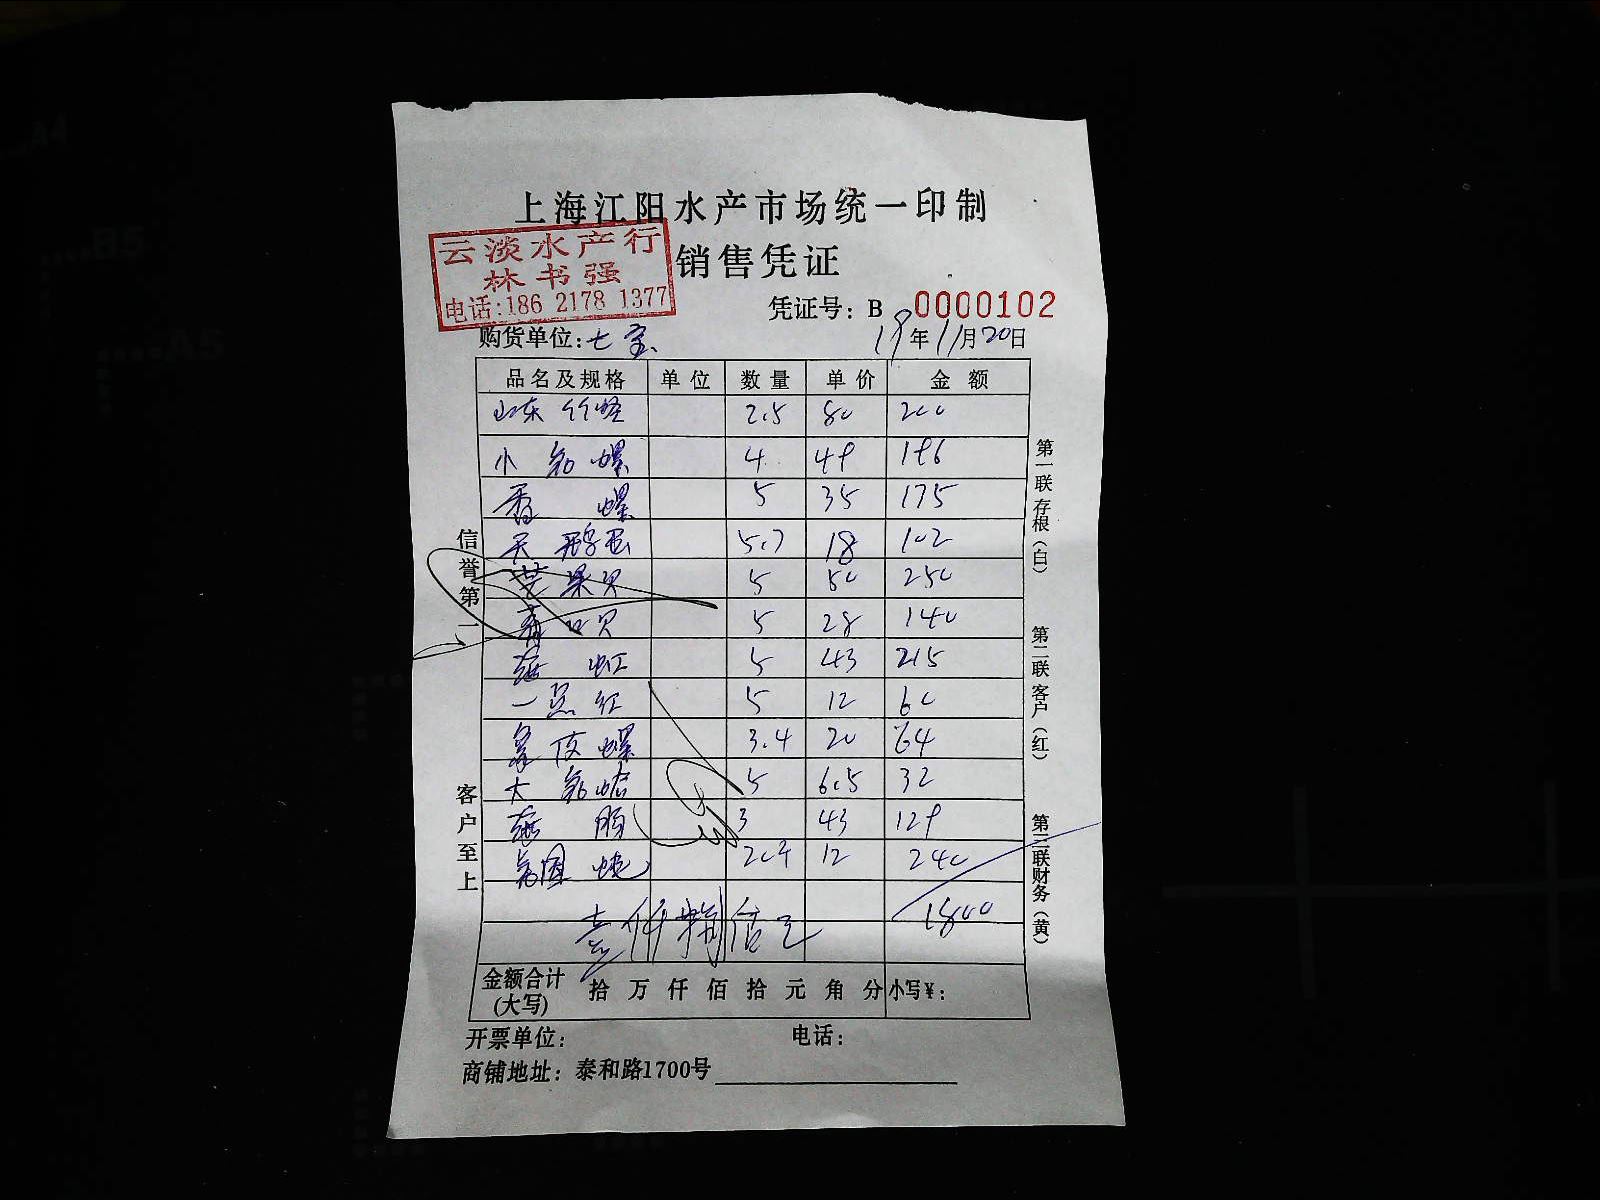 上海江阳水产市场统一印制
销售凭证
云淡水产行
林书强
电话:186 2178 1377
凭证号: B 0000102
购货单位: 七宝
19年11月20日
品名及规格 单位 数量 单价 金额
山东竹蛏 2.5 80 200
小 螺 4 49 196
香螺 5 35 175
天鹅蛋 5.7 18 102
芒果贝 5 50 250
青口贝 5 28 140
海虹 5 43 215
一点红 5 12 60
螺 3.4 20 64
大 蛤 5 6.5 32
海肠 3 43 129
20斤 12 240
1800
壹仟捌佰元
金额合计(大写) 拾 万 仟 佰 拾 元 角 分 小写¥:
开票单位: 电话:
商铺地址: 泰和路1700号
信誉第一
客户至上
第一联存根(白)
第二联客户(红)
第三联财务(黄)